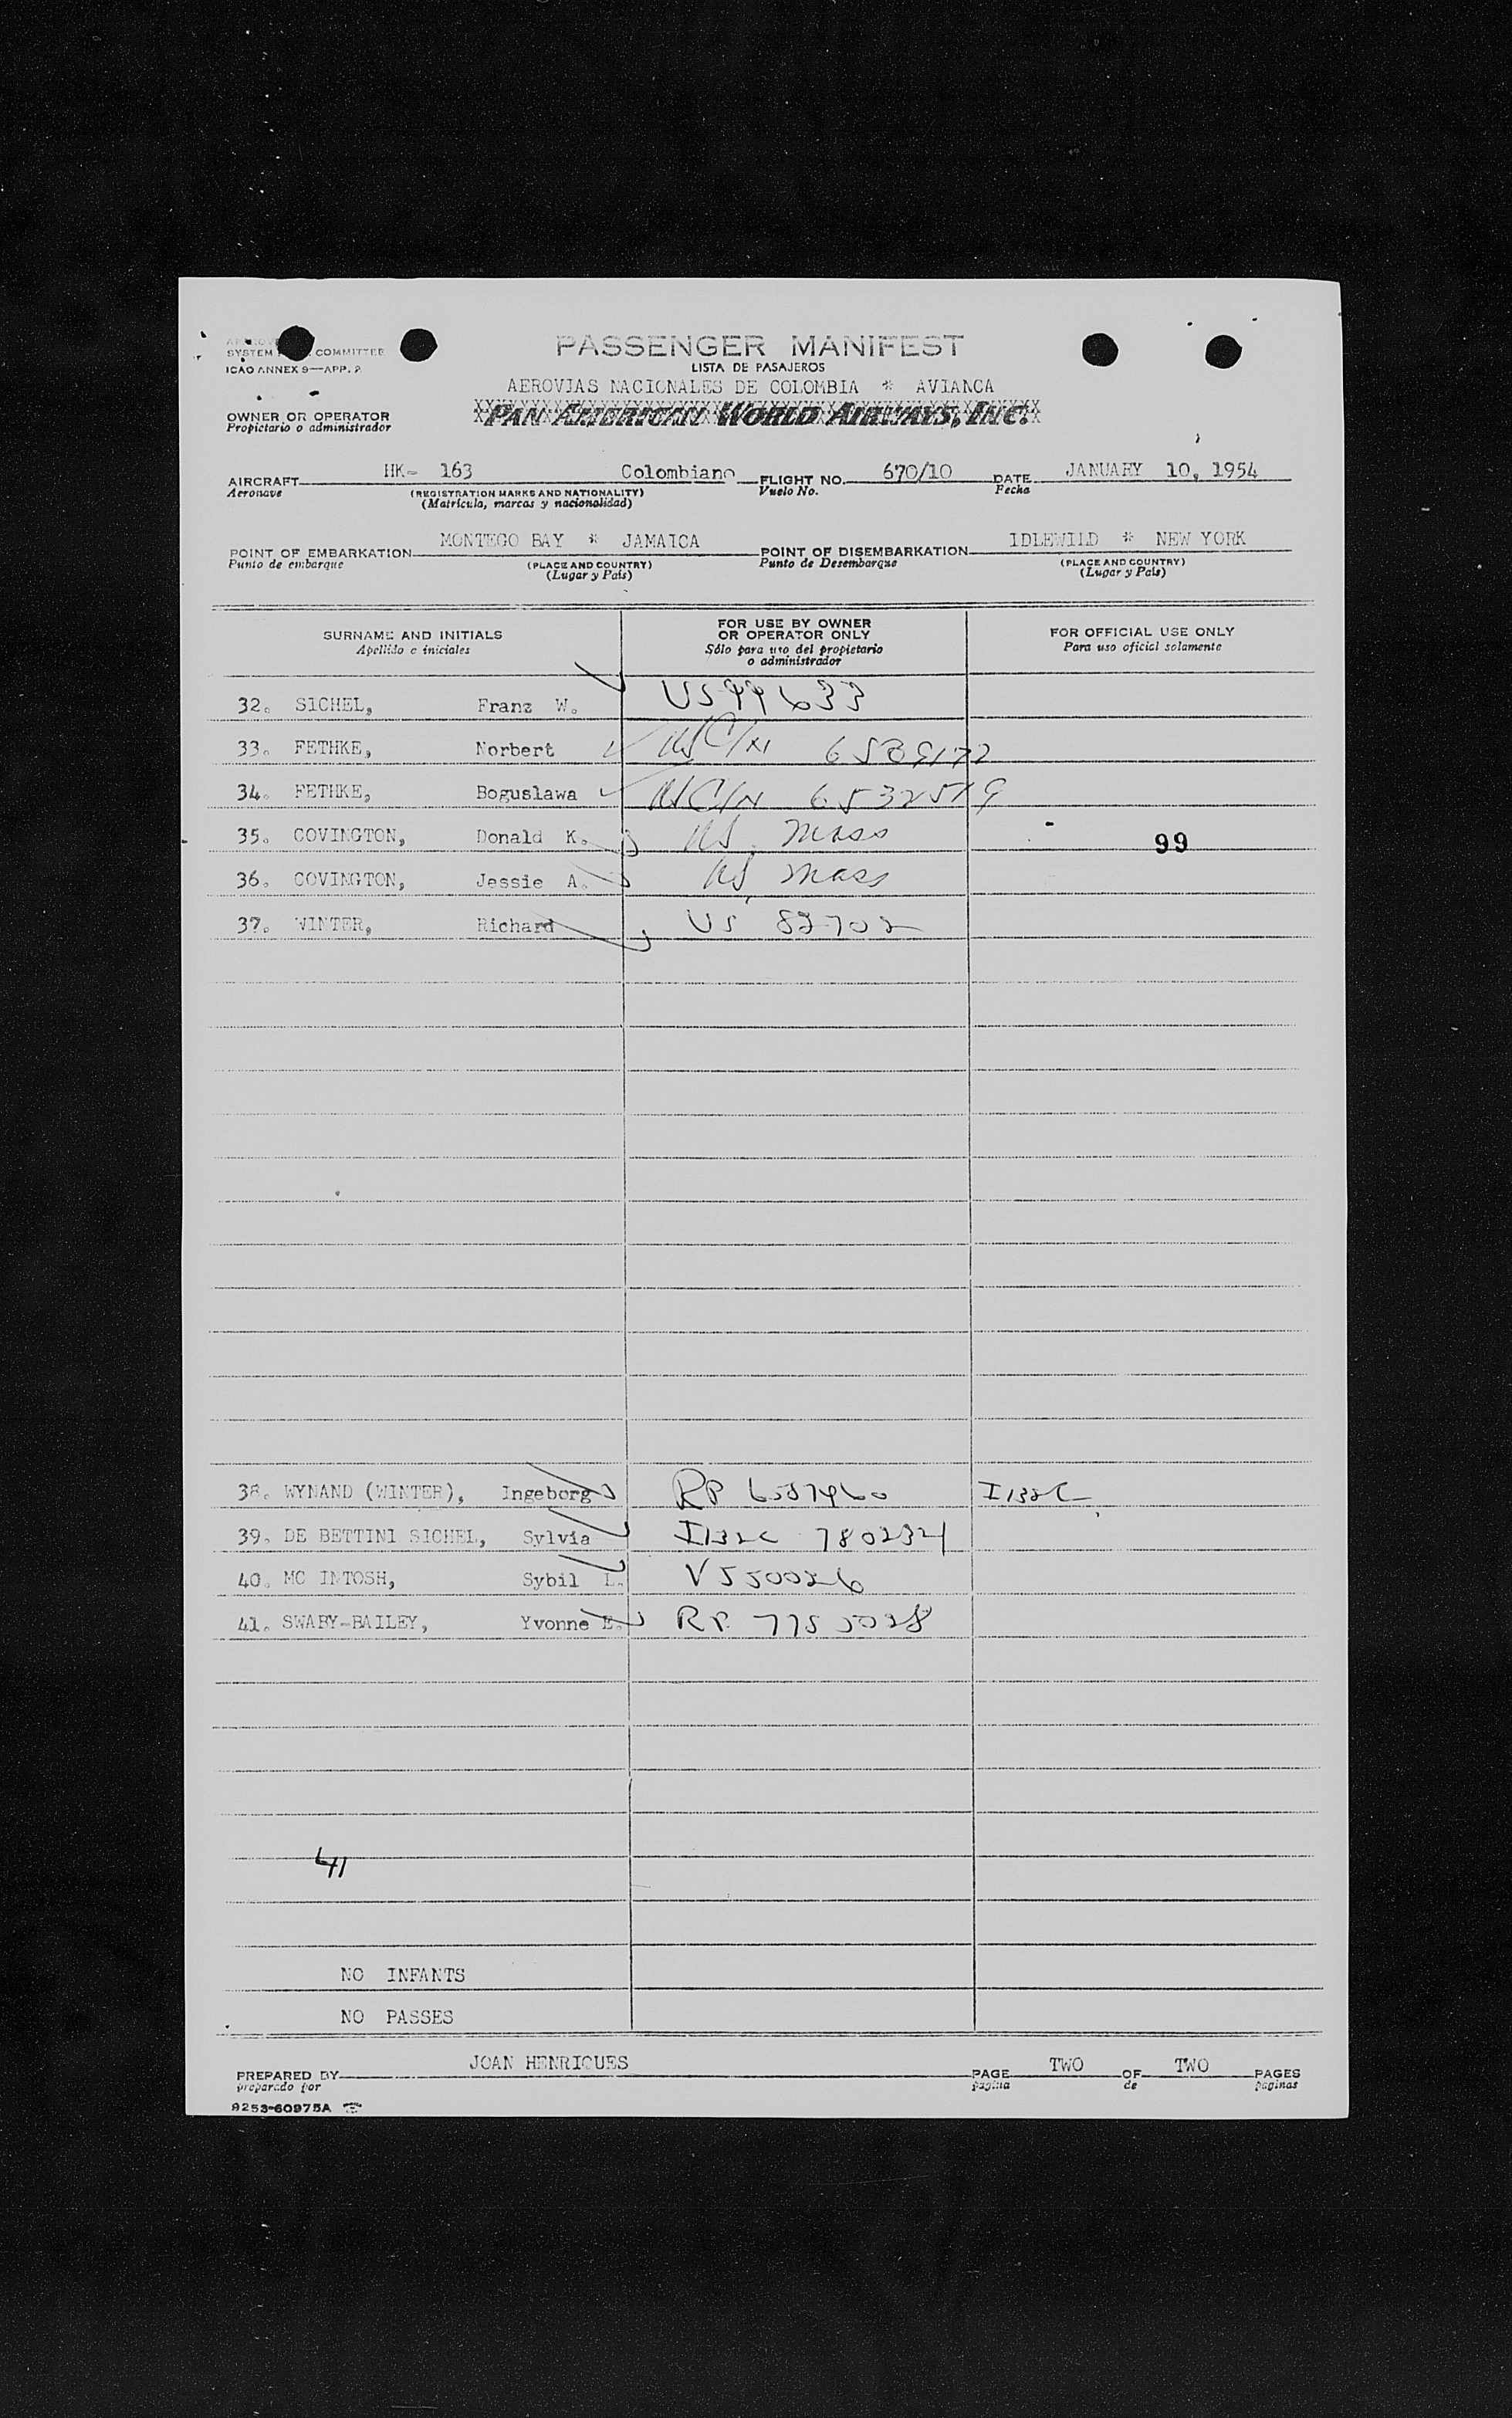 PASSENGER MANIFEST
SYSTEM COMMITTEE
ICAO ANNEX 9—APP. 2
LISTA DE PASAJEROS
AEROVIAS NACIONALES DE COLOMBIA * AVIANCA
OWNER OR OPERATOR
Propietario o administrador
PAN AMERICAN WORLD AIRWAYS, INC.
AIRCRAFT HK- 163 Colombiano FLIGHT NO. 670/10 DATE JANUARY 10, 1954
Aeronave (REGISTRATION MARKS AND NATIONALITY) Vuelo No. Fecha
(Matrícula, marcas y nacionalidad)
POINT OF EMBARKATION MONTEGO BAY * JAMAICA POINT OF DISEMBARKATION IDLEWILD * NEW YORK
Punto de embarque (PLACE AND COUNTRY) Punto de Desembarque (PLACE AND COUNTRY)
(Lugar y País) (Lugar y País)
SURNAME AND INITIALS FOR USE BY OWNER OR OPERATOR ONLY FOR OFFICIAL USE ONLY
Apellido e iniciales Sólo para uso del propietario o administrador Para uso oficial solamente
32. SICHEL, Franz W. US 99633
33. FETHKE, Norbert US C/N
34. FETHKE, Boguslawa US C/N 6532519
35. COVINGTON, Donald K. US. Mass 99
36. COVINGTON, Jessie A. US Mass
37. WINTER, Richard US 82702
38. WYNAND (WINTER), Ingeborg RP I132C
39. DE BETTINI SICHEL, Sylvia I132C 780234
40. MC INTOSH, Sybil L. V550026
41. SWABY-BAILEY, Yvonne E. RP.
41
NO INFANTS
NO PASSES
PREPARED BY JOAN HENRIQUES PAGE TWO OF TWO PAGES
preparado por página de páginas
9253-60975A